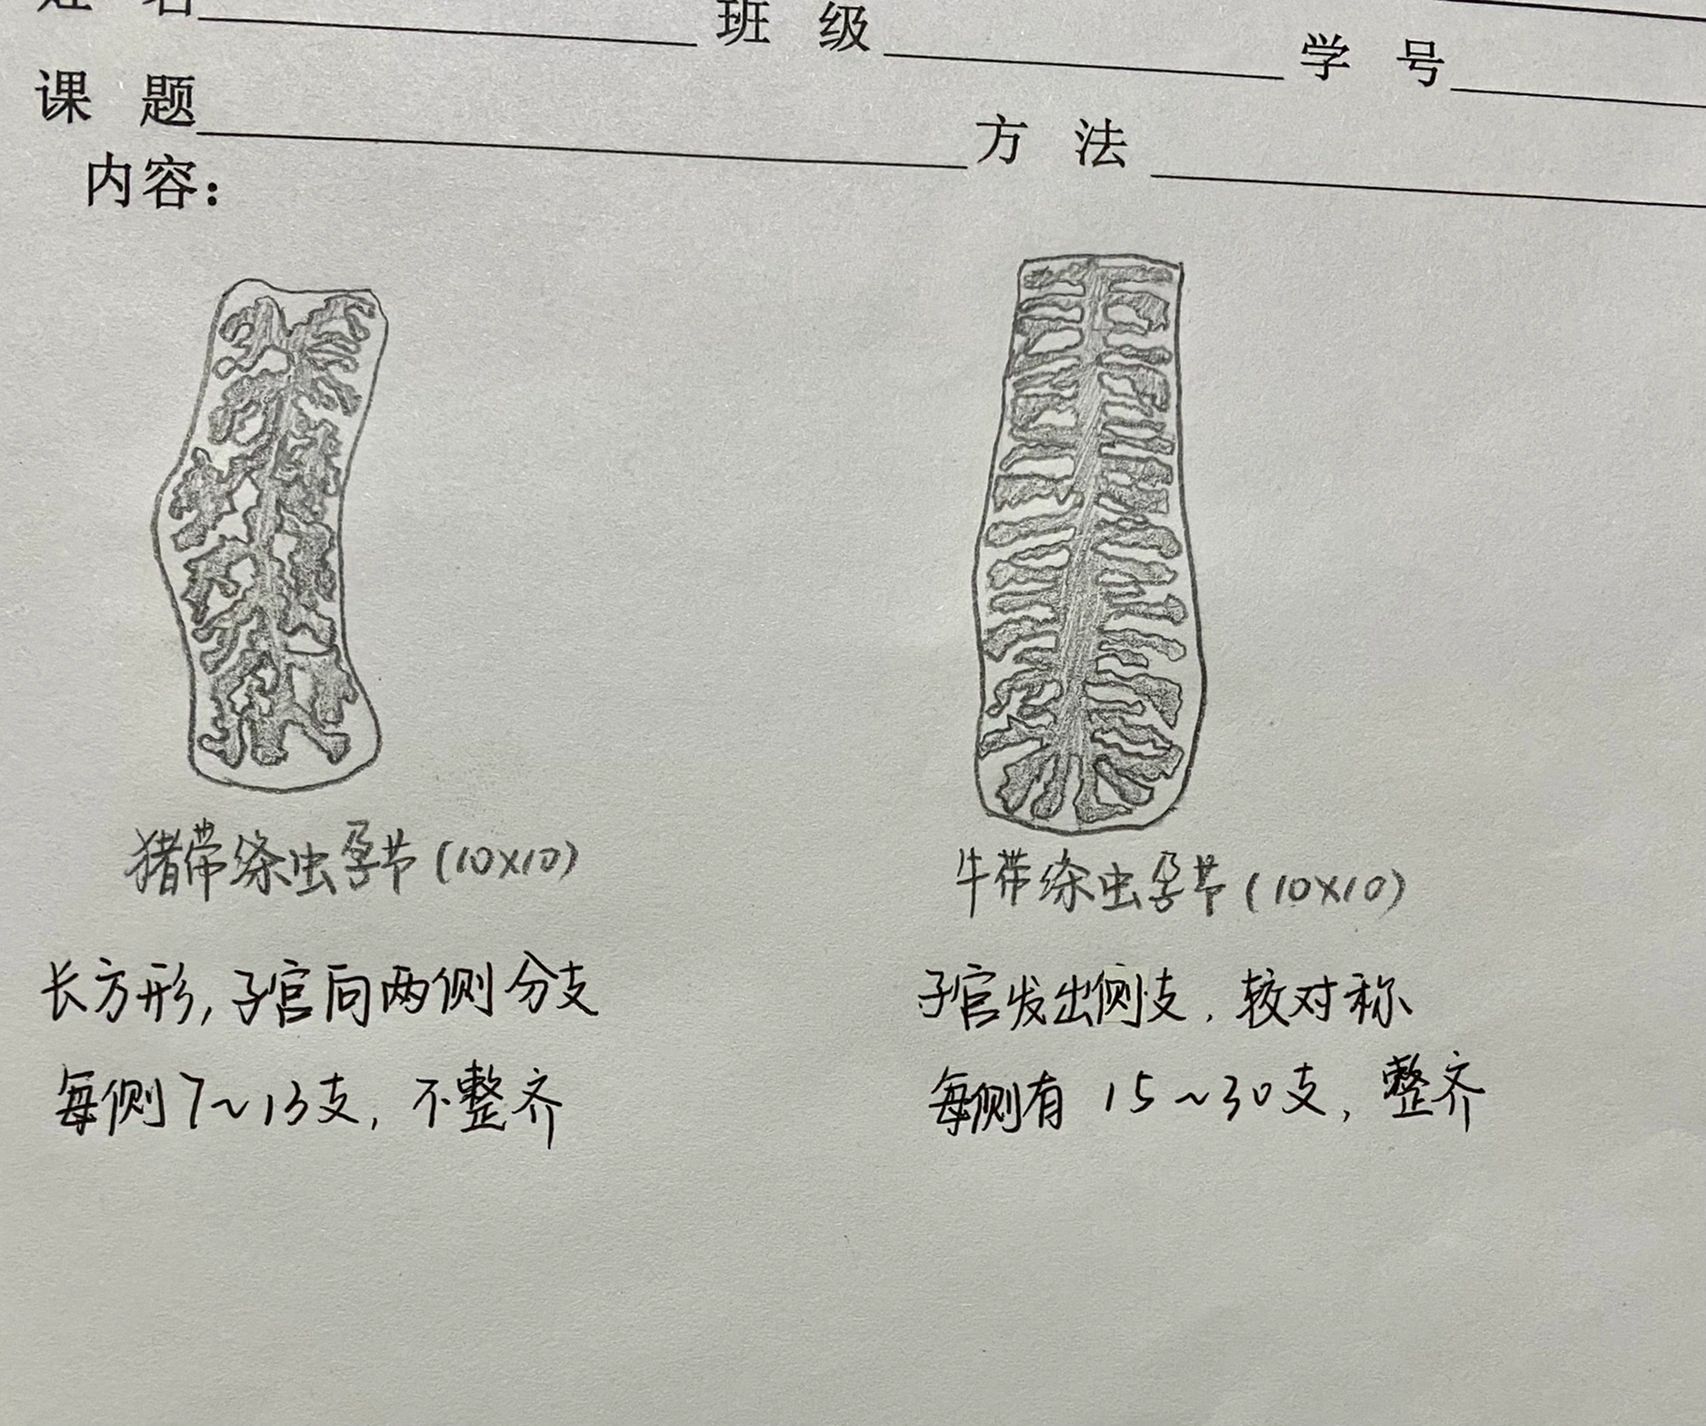 姓 名 班 级 学 号
课 题 方 法
内容：
猪带绦虫孕节(10×10)
牛带绦虫孕节(10×10)
长方形,子宫向两侧分支
每侧7~13支,不整齐
子宫发出侧支,较对称
每侧有 15~30支,整齐